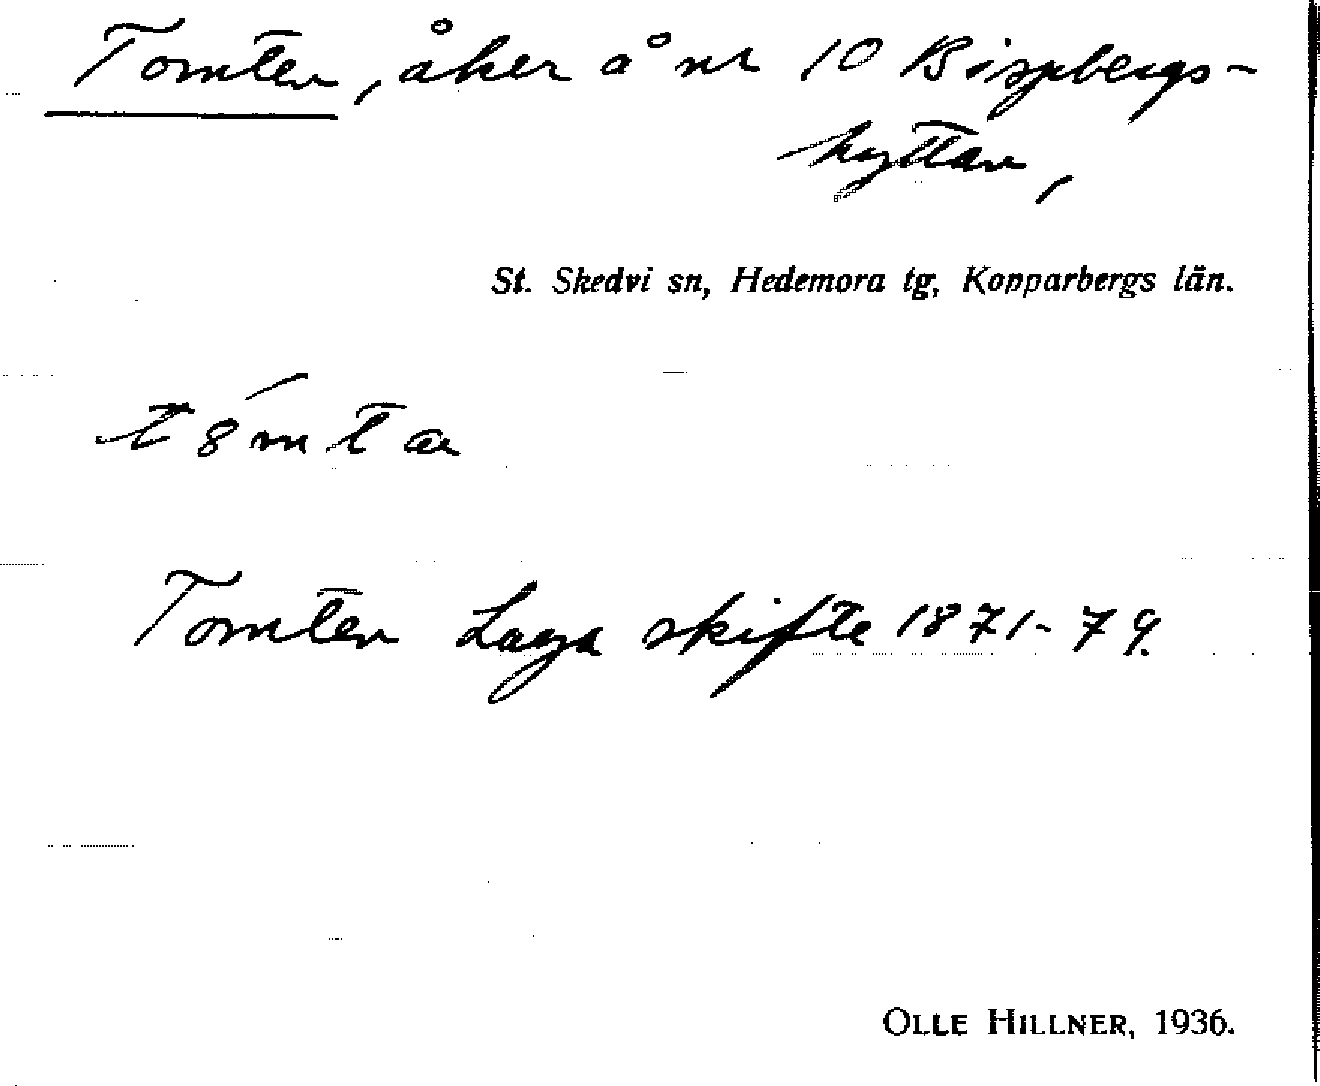 Tomten, åker å nr 10 Bispbergs-
hyttan,
St. Skedvi sn, Hedemora tg, Kopparbergs län.
Tomten Laga skifte 1871-79.
OLLE HILLNER, 1936.